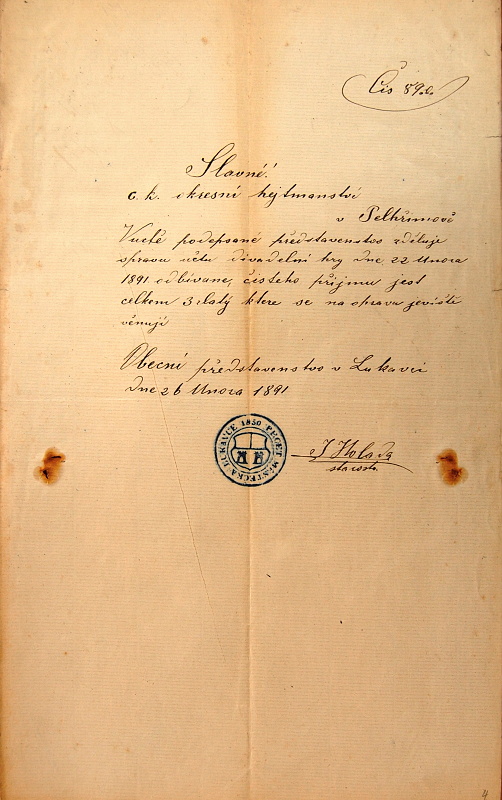 Čis 89.
Slavné!
c. k. okresní hejtmanství
v Pelhřimově
Vuctě podepsané představenstvo zděluje
spravu učtu divadelní hry dne 22 Unora
1891 odbívane, čisteho přijmu jest
celkem 3 zlatý ktere se na opravu jeviště
věnují
Obecní představenstvo v Lukavci
dne 26 Unora 1891
PEČEŤ MĚSTEČKA LUKAVCE 1850
J Holada
starosta
4